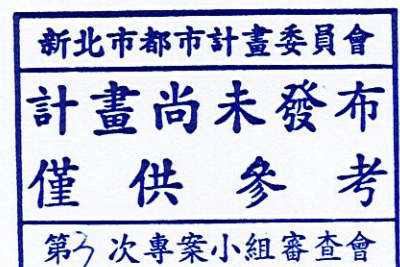 新北市都市計畫委員會
計畫尚未發布
僅供參考
第3次專案小組審查會